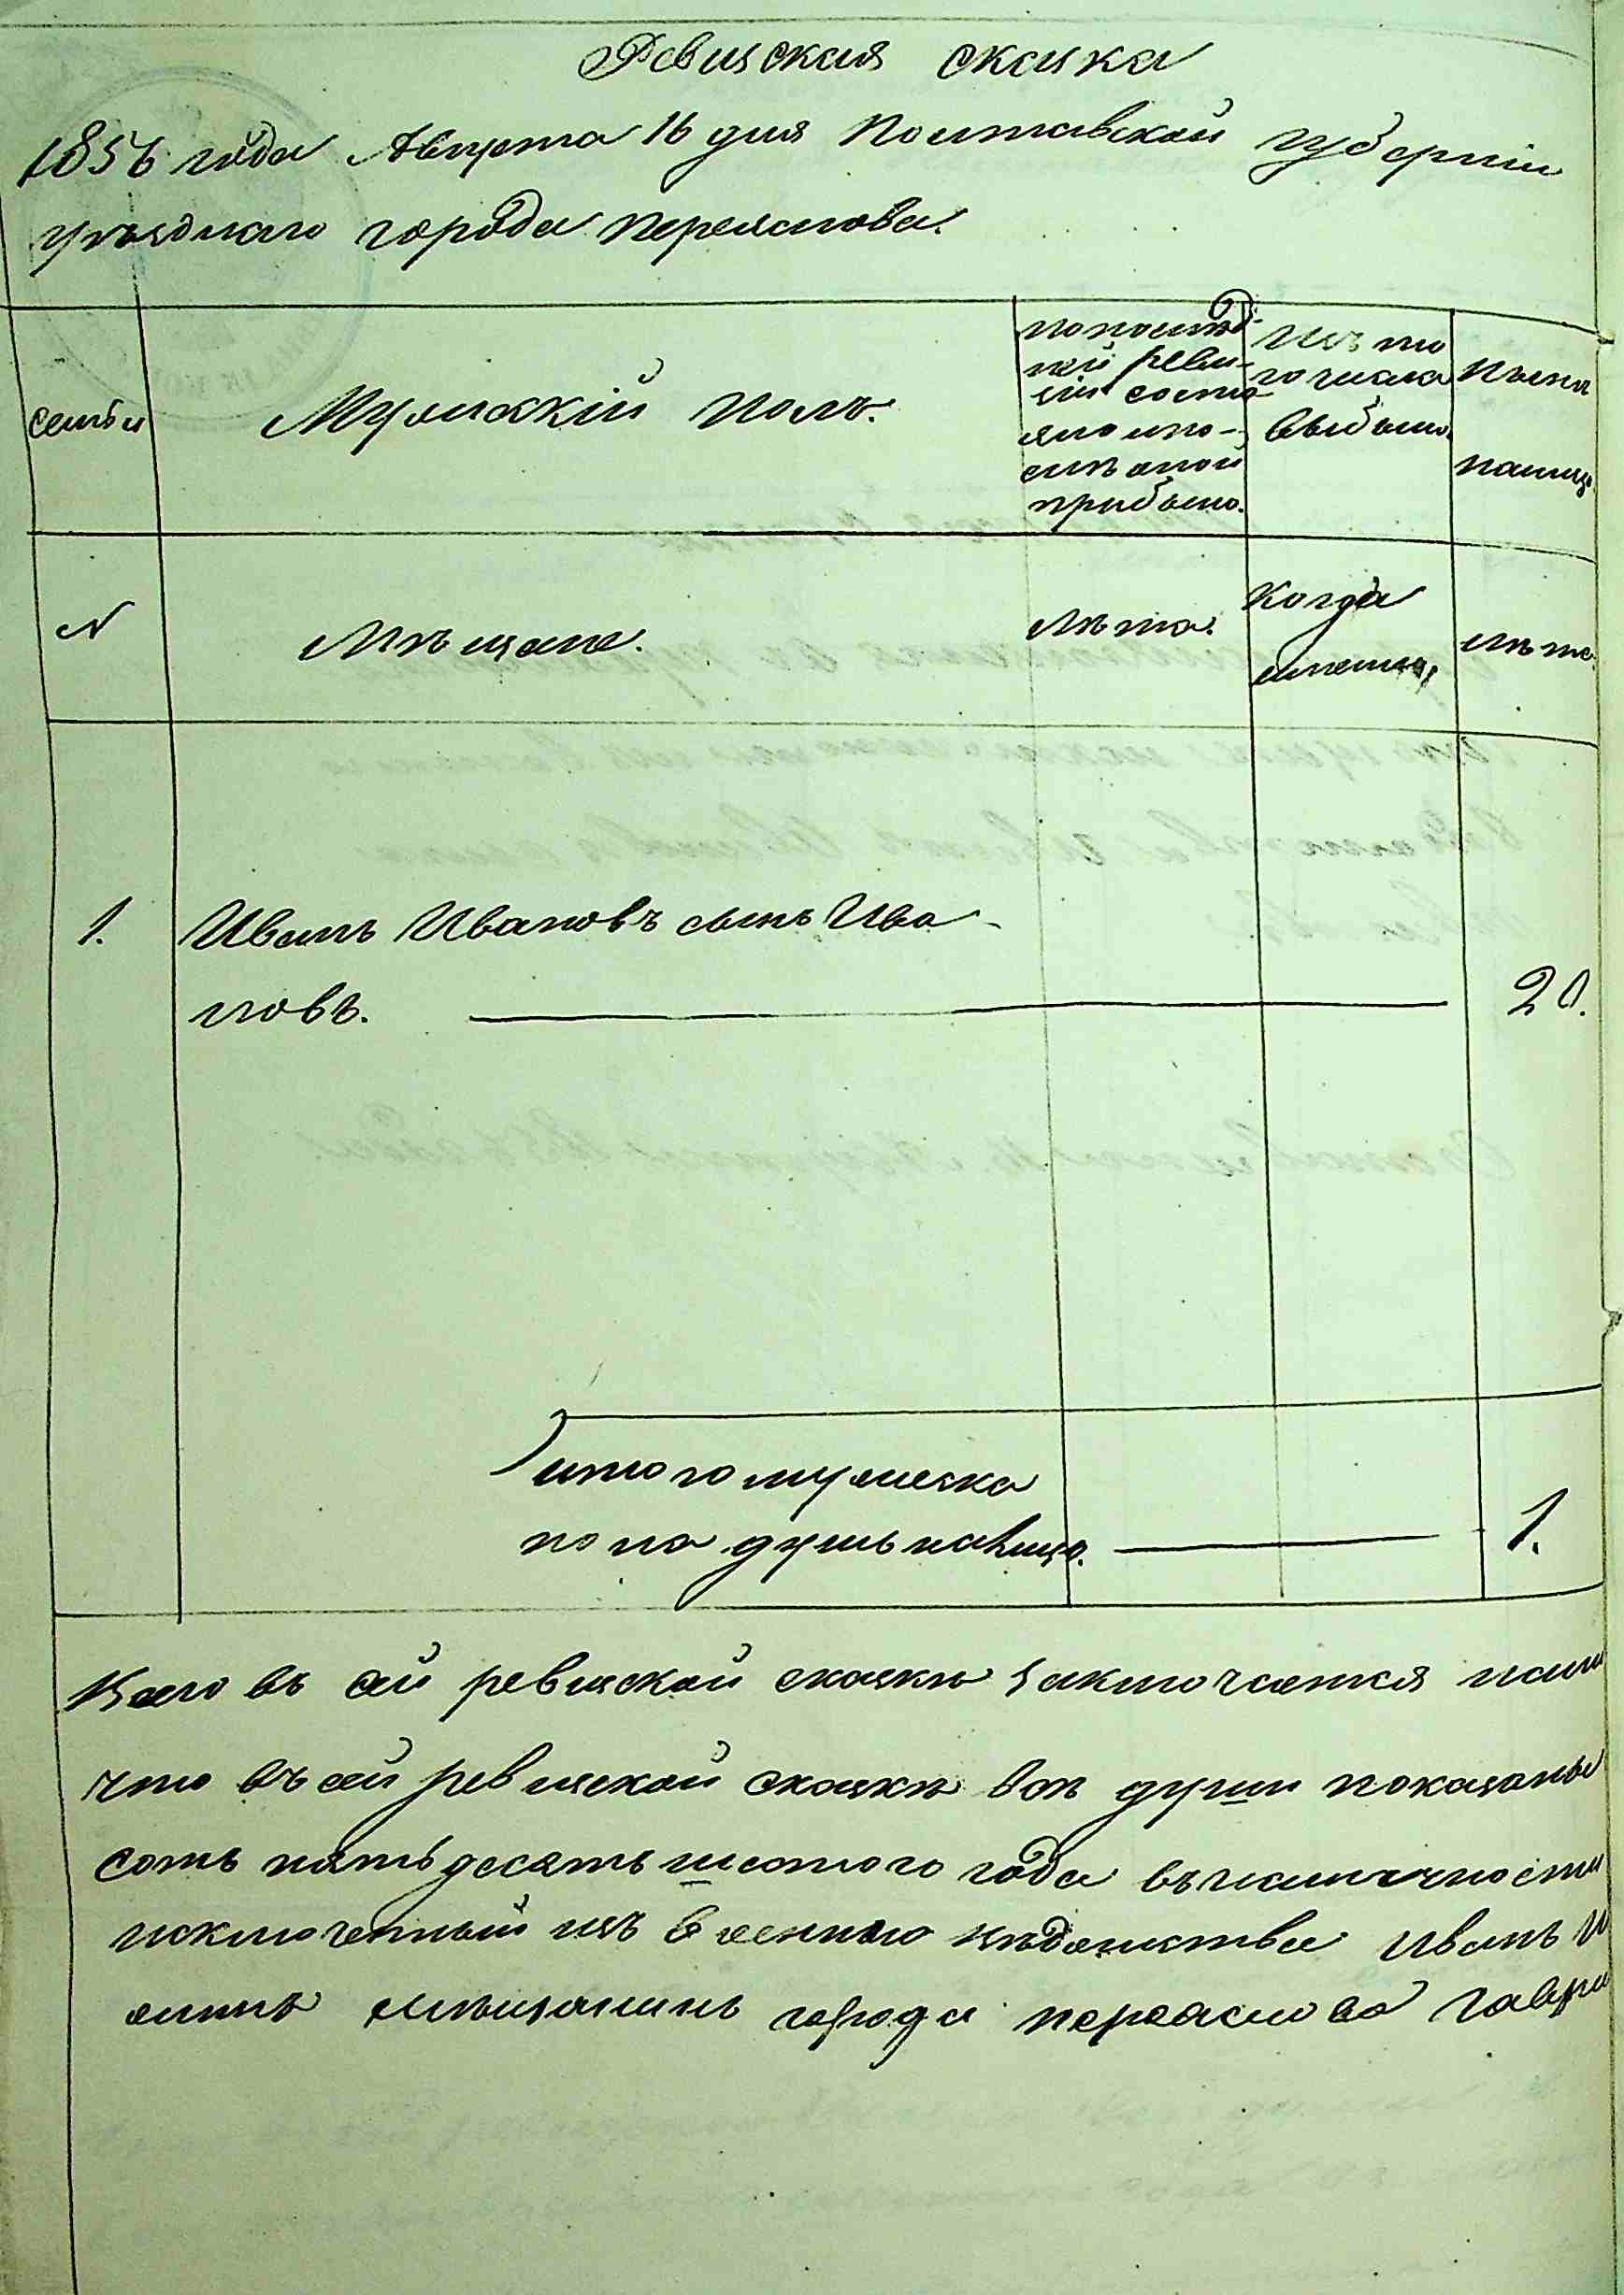 Ревизская сказка
1856 года Августа 16 дня Полтавской губерніи
уѣзднаго города Переяслова.
семьи
Мужскій полъ.
по послѣд-
ней реви-
зіи состо
яло и по-
слѣ оной
прибыло.
Изъ то
го числа
выбыло.
нынѣ
на лицо
N
Мѣщане.
Лѣта.
Когда
именно,
лѣта
1.
Иванъ Ивановъ сынъ Ива-
новъ.
20.
итого мужеска
пола душъ налицо.
1.
Всего въ сей ревизской сказкѣ заключается
что въ сей ревизской сказкѣ всѣ души показаны
сотъ пятьдесятъ шестого года въ наличности
исключенный изъ военнаго вѣдомства Иванъ И
мѣщанинъ города Переяслова